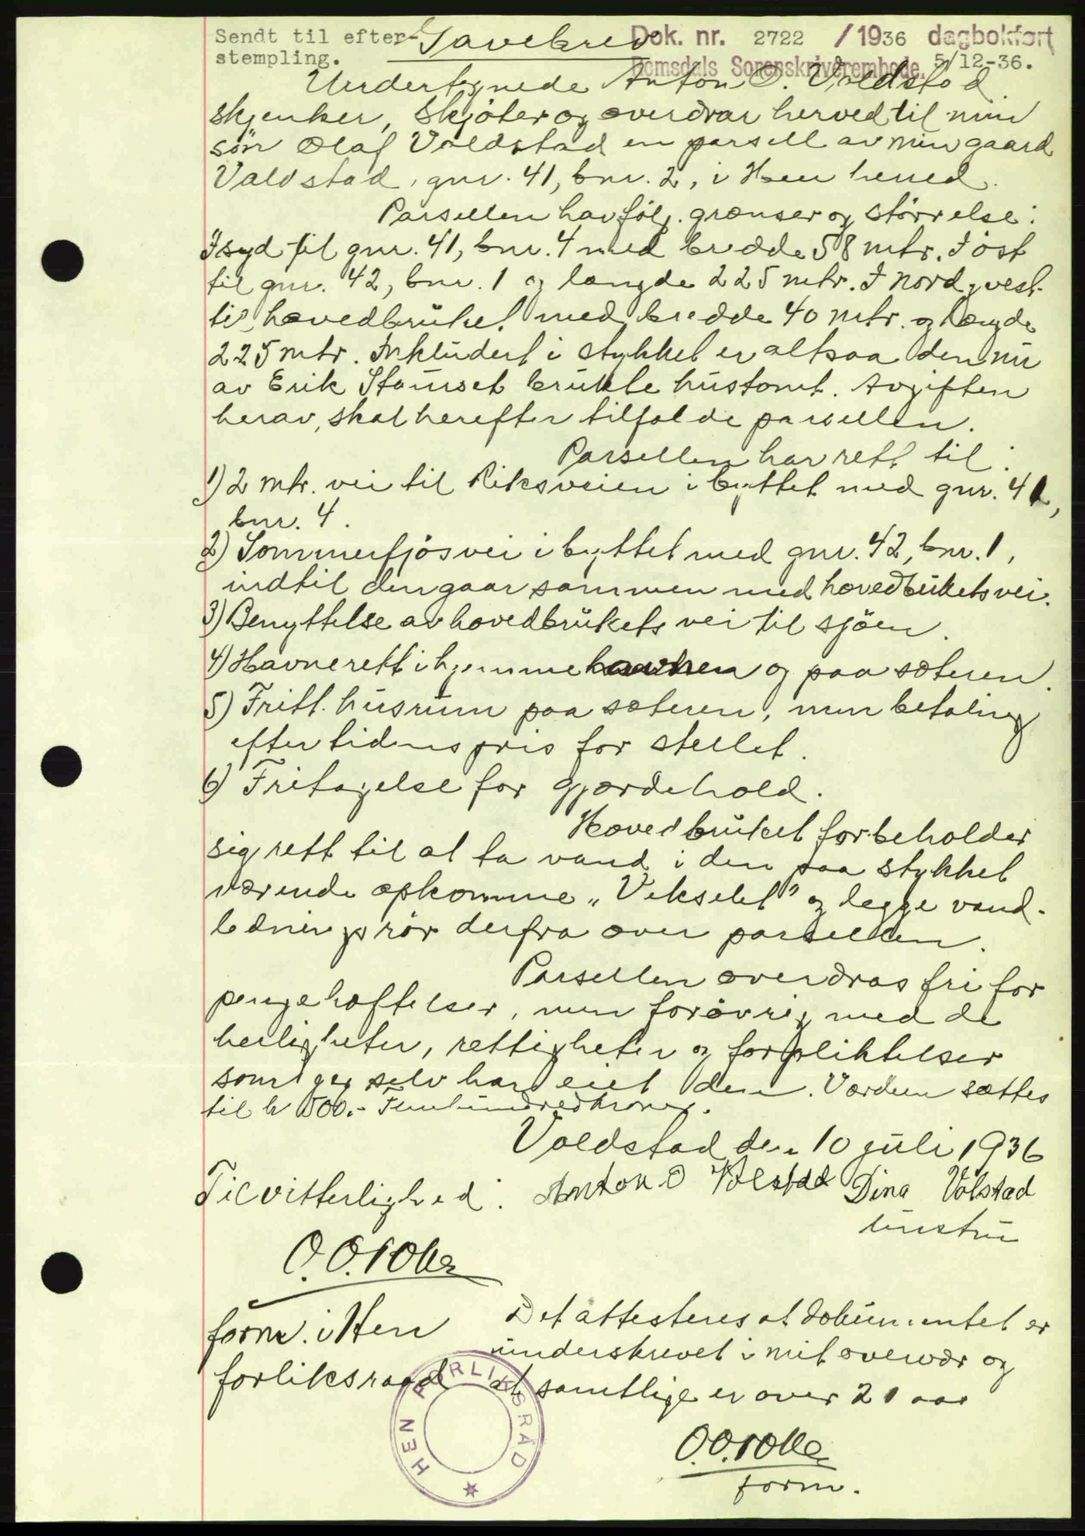 Sendt til efter-
stempling.
Gavebrev
Dok. nr. 2722 /1936 dagbokført
Romsdals Sorenskriverembede. 5/12-36.
Undertegnede Anton O. Valdstad
skjenker, skjöter og overdrar herved til min
sön Olaf Valdstad en parsell av min gaard
Valdstad, gnr. 41, bnr. 2, i Hen herred.
Parsellen har följ. grænser og störrelse:
I syd til gnr. 41, bnr. 4 med bredde 58 mtr. I öst
til gnr. 42, bnr. 1 og længde 225 mtr. I nord, vest
til hovedbruket med bredde 40 mtr. og længde
225 mtr. Inkludert i stykket er altsaa den nu
av Erik Stamset brukte hustomt. Avgiften
herav, skal herefter tilfalde parsellen.
Parsellen har rett til:
1) 2 mtr. vei til Riksveien i byttet med gnr. 41,
bnr. 4.
2) Sommerfjösvei i byttet med gnr. 42, bnr. 1,
indtil den gaar sammen med hovedbrukets vei.
3) Benyttelse av hovedbrukets vei til sjöen.
4) Havnerett i hjemmehavnen og paa sæteren.
5) Fritt husrum paa sæteren, men betaling
efter tidens pris for stellet.
6) Fritagelse for gjærdehold.
Hovedbruket forbeholder
sig rett til at ta vand i den paa stykket
værende opkomme "Vekselet" og legge vand-
ledningsrör derfra over parsellen.
Parsellen overdras fri for
pengeheftelser, men forövrig med de
herligheter, rettigheter og forpliktelser
som jeg selv har eiet den. Værdien sættes
til kr 500.- Femhundredkroner.
Valdstad den 10 juli 1936
Til vitterlighed: Anton O Valstad Dina Valstad
hustru
O. O. Voll
form. i Hen
forliksraad
Det attesteres at dokumentet er
underskrevet i mit overvær og
at samtlige er over 21 aar
HEN FORLIKSRÅD
form.